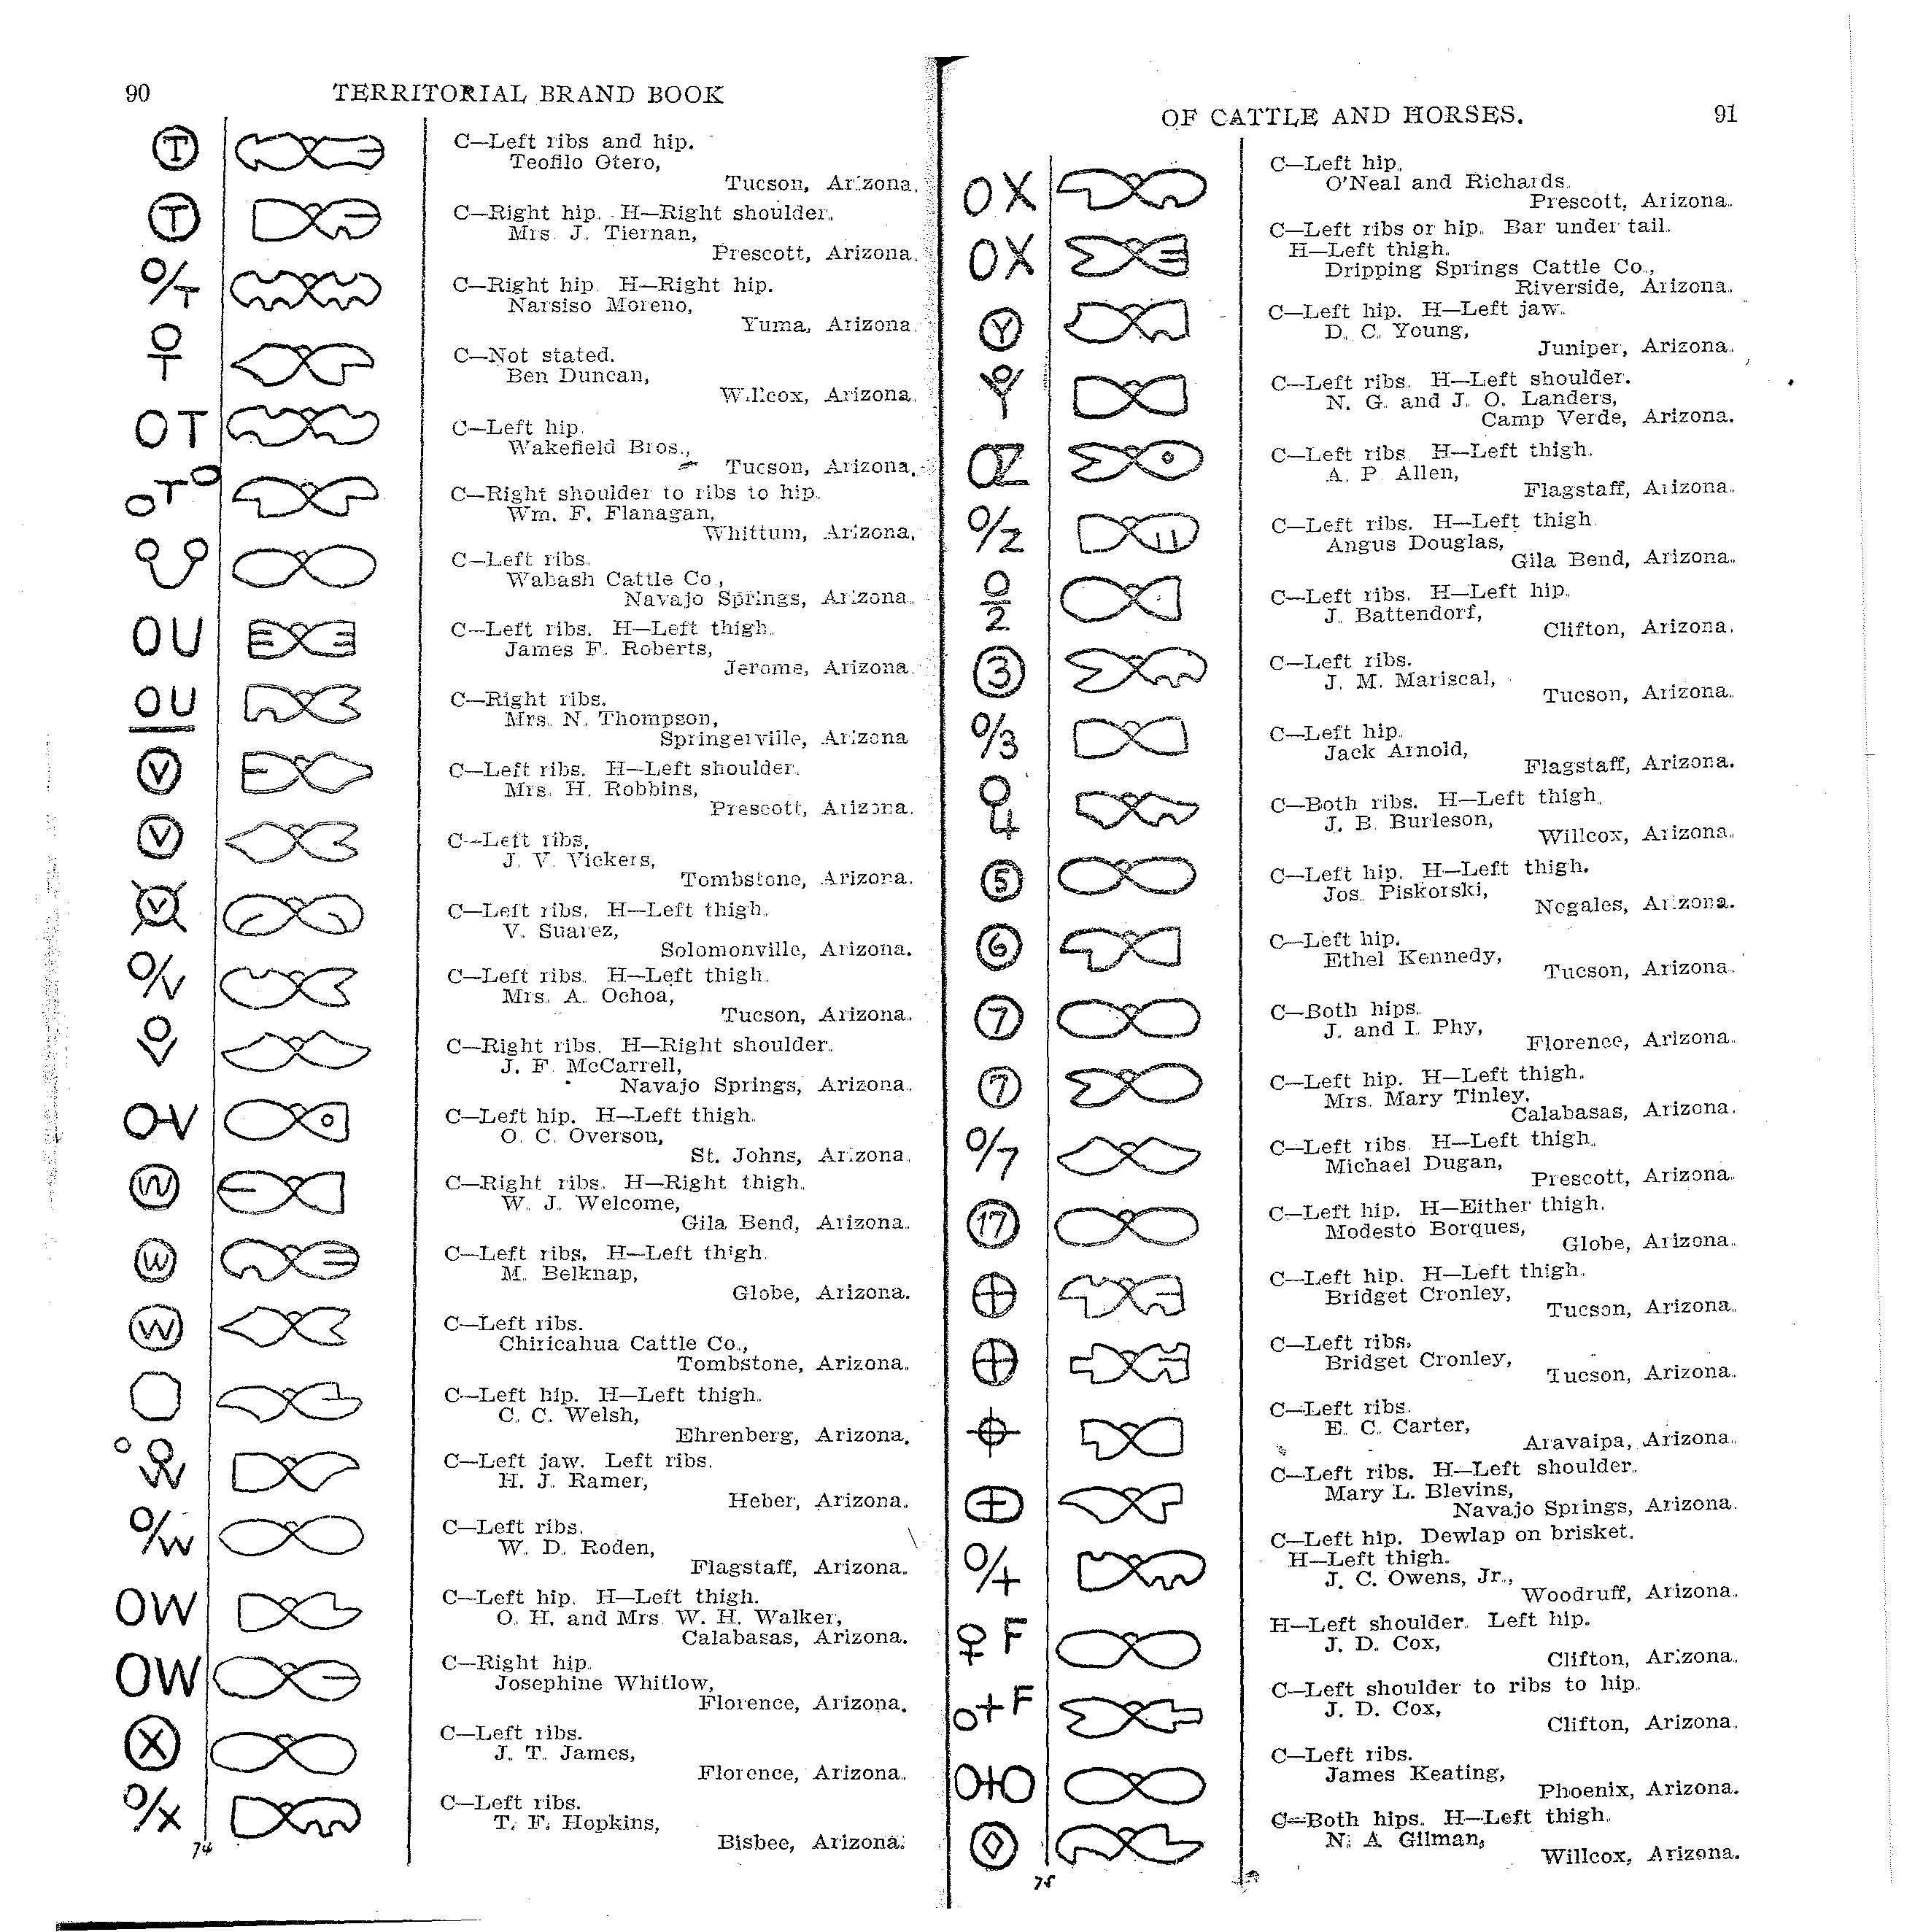 90 TERRITORIAL BRAND BOOK
T
C—Left ribs and hip.
Teofilo Otero,
Tucson, Arizona.
T
C—Right hip. H—Right shoulder.
Mrs. J. Tiernan,
Prescott, Arizona.
O/T
C—Right hip. H—Right hip.
Narsiso Moreno,
Yuma, Arizona.
C—Not stated.
Ben Duncan,
Willcox, Arizona.
OT
C—Left hip.
Wakefield Bros.,
Tucson, Arizona.
OTO
C—Right shoulder to ribs to hip.
Wm. F. Flanagan,
Whittum, Arizona.
C—Left ribs.
Wabash Cattle Co.,
Navajo Springs, Arizona.
OU
C—Left ribs. H—Left thigh.
James F. Roberts,
Jerome, Arizona.
OU
C—Right ribs.
Mrs. N. Thompson,
Springerville, Arizona
V
C—Left ribs. H—Left shoulder.
Mrs. H. Robbins,
Prescott, Arizona.
V
C—Left ribs,
J. V. Vickers,
Tombstone, Arizona.
V
C—Left ribs. H—Left thigh.
V. Suarez,
Solomonville, Arizona.
O/V
C—Left ribs. H—Left thigh.
Mrs. A. Ochoa,
Tucson, Arizona.
C—Right ribs. H—Right shoulder.
J. F. McCarrell,
Navajo Springs, Arizona.
O-V
C—Left hip. H—Left thigh.
O. C. Overson,
St. Johns, Arizona.
W
C—Right ribs. H—Right thigh.
W. J. Welcome,
Gila Bend, Arizona.
W
C—Left ribs. H—Left thigh.
M. Belknap,
Globe, Arizona.
W
C—Left ribs.
Chiricahua Cattle Co.,
Tombstone, Arizona.
C—Left hip. H—Left thigh.
C. C. Welsh,
Ehrenberg, Arizona.
C—Left jaw. Left ribs.
H. J. Ramer,
Heber, Arizona.
O/W
C—Left ribs.
W. D. Roden,
Flagstaff, Arizona.
OW
C—Left hip. H—Left thigh.
O. H. and Mrs. W. H. Walker,
Calabasas, Arizona.
OW
C—Right hip.
Josephine Whitlow,
Florence, Arizona.
X
C—Left ribs.
J. T. James,
Florence, Arizona.
O/X
C—Left ribs.
T. F. Hopkins,
Bisbee, Arizona.
74
OF CATTLE AND HORSES. 91
OX
C—Left hip.
O'Neal and Richards.
Prescott, Arizona.
OX
C—Left ribs or hip. Bar under tail.
H—Left thigh.
Dripping Springs Cattle Co.,
Riverside, Arizona.
Y
C—Left hip. H—Left jaw.
D. C. Young,
Juniper, Arizona.
C—Left ribs. H—Left shoulder.
N. G. and J. O. Landers,
Camp Verde, Arizona.
OZ
C—Left ribs. H—Left thigh.
A. P. Allen,
Flagstaff, Arizona.
O/Z
C—Left ribs. H—Left thigh.
Angus Douglas,
Gila Bend, Arizona.
O
2
C—Left ribs. H—Left hip.
J. Battendorf,
Clifton, Arizona.
3
C—Left ribs.
J. M. Mariscal,
Tucson, Arizona.
O/3
C—Left hip.
Jack Arnold,
Flagstaff, Arizona.
O
4
C—Both ribs. H—Left thigh.
J. B. Burleson,
Willcox, Arizona.
5
C—Left hip. H—Left thigh.
Jos. Piskorski,
Nogales, Arizona.
6
C—Left hip.
Ethel Kennedy,
Tucson, Arizona.
7
C—Both hips.
J. and I. Phy,
Florence, Arizona.
7
C—Left hip. H—Left thigh.
Mrs. Mary Tinley,
Calabasas, Arizona.
O/7
C—Left ribs. H—Left thigh.
Michael Dugan,
Prescott, Arizona.
17
C—Left hip. H—Either thigh.
Modesto Borques,
Globe, Arizona.
C—Left hip. H—Left thigh.
Bridget Cronley,
Tucson, Arizona.
C—Left ribs.
Bridget Cronley,
Tucson, Arizona.
C—Left ribs.
E. C. Carter,
Aravaipa, Arizona.
C—Left ribs. H—Left shoulder.
Mary L. Blevins,
Navajo Springs, Arizona.
O/+
C—Left hip. Dewlap on brisket.
H—Left thigh.
J. C. Owens, Jr.,
Woodruff, Arizona.
♀ F
H—Left shoulder. Left hip.
J. D. Cox,
Clifton, Arizona.
O+F
C—Left shoulder to ribs to hip.
J. D. Cox,
Clifton, Arizona.
O+O
C—Left ribs.
James Keating,
Phoenix, Arizona.
C—Both hips. H—Left thigh.
N. A Gilman,
Willcox, Arizona.
75